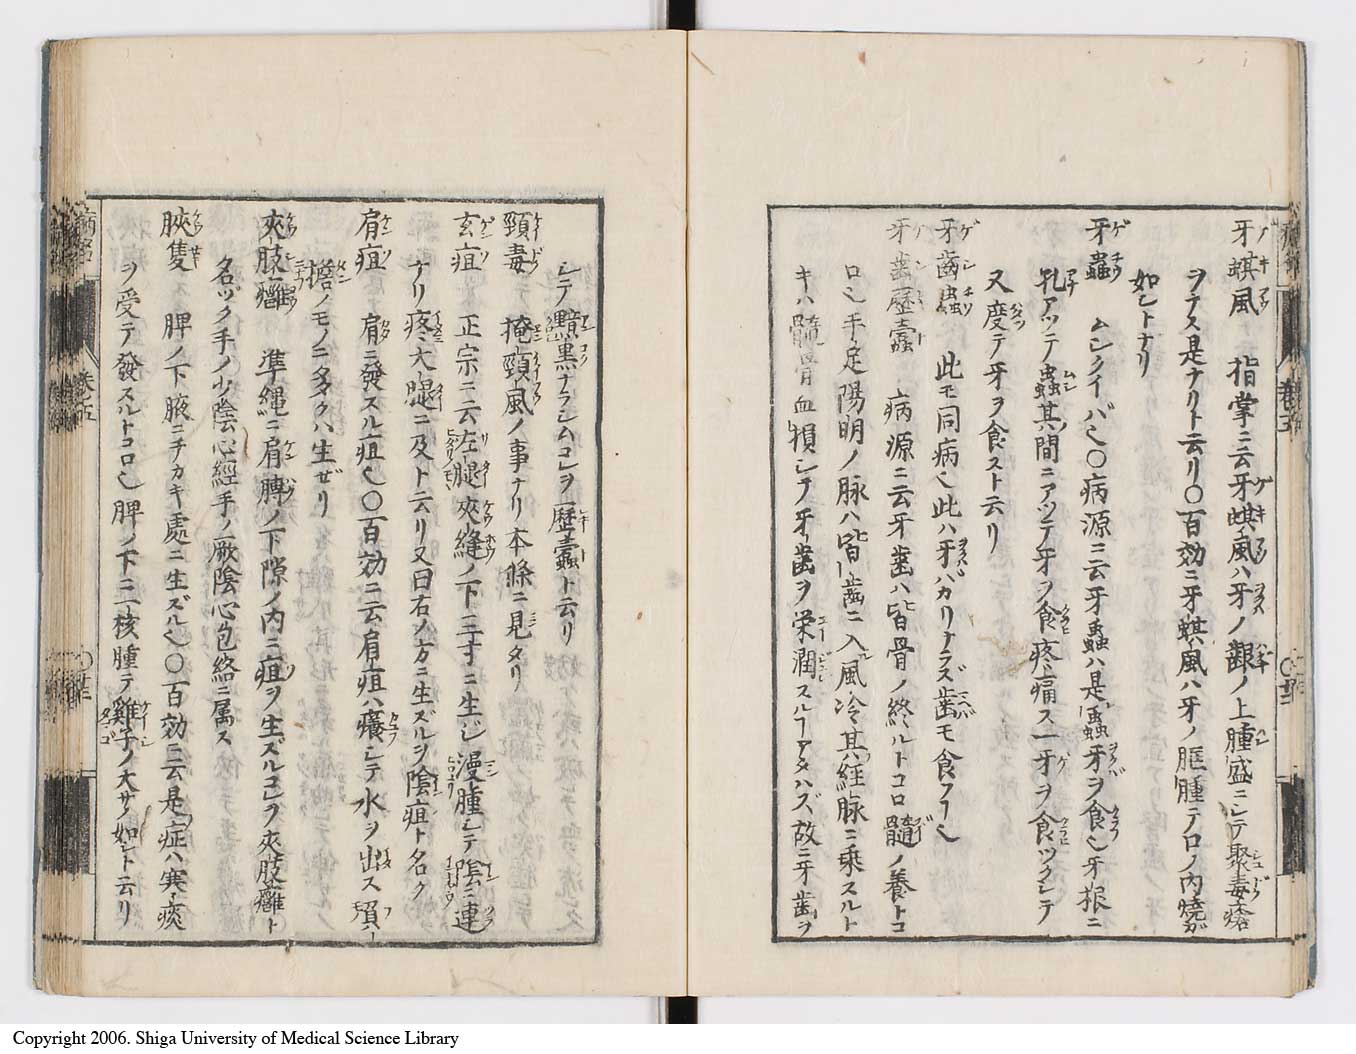 牙蜞風 指掌ニ云牙蜞風ハ牙ノ齦ノ上腫盛ニシテ聚毒瘩
ヲナス是ナリト云リ〇百効ニ牙蜞風ハ牙ノ腫テ口ノ内燒ガ
如シトナリ
牙蟲 ムシクイバ也〇病源ニ云牙蟲ハ是蟲牙ヲ食也牙根ニ
孔アツテ蟲其間ニアツテ牙ヲ食疼痛ス一牙ヲ食ツクシテ
又度テ牙ヲ食スト云リ
牙齒蟲 此モ同病也此ハ牙ハカリナラズ齒モ食フ也
牙齒歷蠹 病源ニ云牙齒ハ皆骨ノ終ルトコロ髓ノ養トコ
ロ也手足陽明ノ脉ハ皆齒ニ入風冷其經脉ニ乘スルト
キハ髓骨血損シテ牙齒ヲ栄潤スルアタハズ故ニ牙齒ヲ
シテ黯黒ナラシムコレヲ歷蠹ト云リ
頸毒 掩頸風ノ事ナリ本條ニ見タリ
玄疽 正宗ニ云左腿夾縫ノ下三寸ニ生ジ漫腫シテ陰ニ連
ナリ疼大腿ニ及ト云リ又曰右ノ方ニ生ズルヲ陰疽ト名ク
肩疽 肩ニ發スル疽也〇百効ニ云肩疽ハ癢シテ水ヲ出ス
擔ノモノニタタクハ生ゼリ
夾肢癰 準縄ニ肩膊ノ下隙ノ内ニ疽ヲ生ズルコレヲ夾肢癰ト
名ヅク手ノ少陰心經手ノ厥陰心包絡ニ属ス
脥隻 脾ノ下腋ニチカキ處ニ生ズル也〇百効ニ云是症ハ寒痰
ヲ受テ發スルトコロ也脾ノ下ニ一核腫テ雞子ノ大サノ如シト云リ
卷之五
Copyright 2006. Shiga University of Medical Science Library